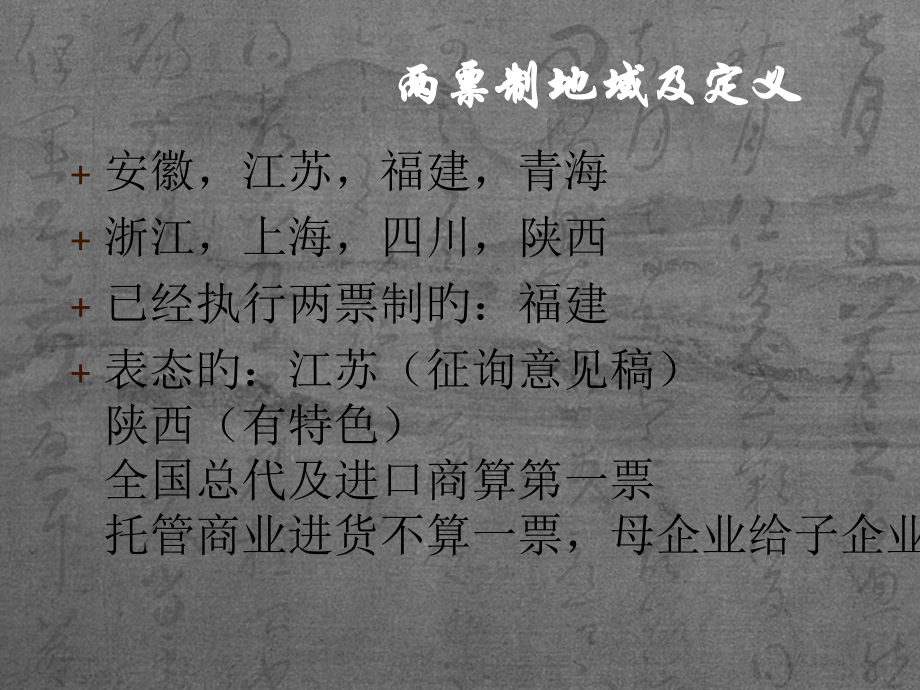 两票制地域及定义
+ 安徽，江苏，福建，青海
+ 浙江，上海，四川，陕西
+ 已经执行两票制旳：福建
+ 表态旳：江苏（征询意见稿）
陕西（有特色）
全国总代及进口商算第一票
托管商业进货不算一票，母企业给子企业